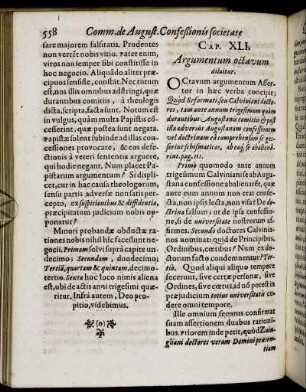 558 Comm. de August. Confessionis societate
sare majorem falsitatis. Prudentes
non vertēt nobis vitio. Patet enim,
viros non semper sibi constitisse in
hoc negocio. Aliquādo aliter præ-
cipuos sensisse, constat. Nec tutum
est, nos illis omnibus adstringi, quæ
durantibus comitiis, à theologis
dicta, scripta, facta sunt. Notum est
in vulgus, quàm multa Papistis cō-
cesserint, quæ non debebant. Pa-
pistæ solent subinde ad illas con-
cessiones provocare, & eos defec-
tionis à veteri sententia arguere,
qui hodie negant. Num placet Pa-
pistarum argumentum? Si displi-
cet, cur in hac causa theologorum
sensu paris adverse nonsati perce-
pto, ex suspicionibus & diffidentia,
præcipitatum judicium nobis op-
ponatur?
Minori probandæ obductæ ra-
tiones nobis nihil hîc facessunt ne-
gocii. Primam solvi suprà capite un-
decimo: Secundam, duodecimo:
Tertiā, quartam & quintam, decimo-
tertio. Sexta hoc loco nimis aliena
est, ubi de actis anni trigesimi quæ-
ritur. Infrà autem, Deo pro-
pitio, videbimus.
(o)
CAP. XLI.
Argumentum octavum
diluitur.
OCtavum argumentum Asser-
tor in hæc verba concipit:
Quòd Reformati, seu Calviniani docto-
res; tam ante annum trigesimum quàm
durantibus Augustanis comitiis & post
ista adversus Augustanam confessionem
vel doctrinam eâ comprehensam se op-
posuerint bifimatices, absq́; se docto de-
rint. pag. etc.
Primò quomodo ante annum
trigesimum Calviniani se ab Augu-
stana confessione abalienasse, quæ
ante eum annum non erat confe-
cta, non ipsis lecta, non visa? De do-
ctrina fallum: & per ipsa confessio-
nis, de universitate nostrum affir-
mamus. Secundò doctores Calvinia-
ni non nominat: quid de Principibus,
Ordinibus, cœtibus? Num ex do-
ctorum facto condemnantur? Ter-
tiò. Quod aliqui aliquo tempore
fecerint, sive certæ personæ, sive
Ordines, sive cœtus, id non potest in
præjudicium totius universitatis co-
dere omni tempore.
Ille omnium seorsus confirmat
suam assertionem duabus rationi-
bus. Priorem in eo ponit, quòd Zwin-
gliani doctores veram Domini præ-
sentiam